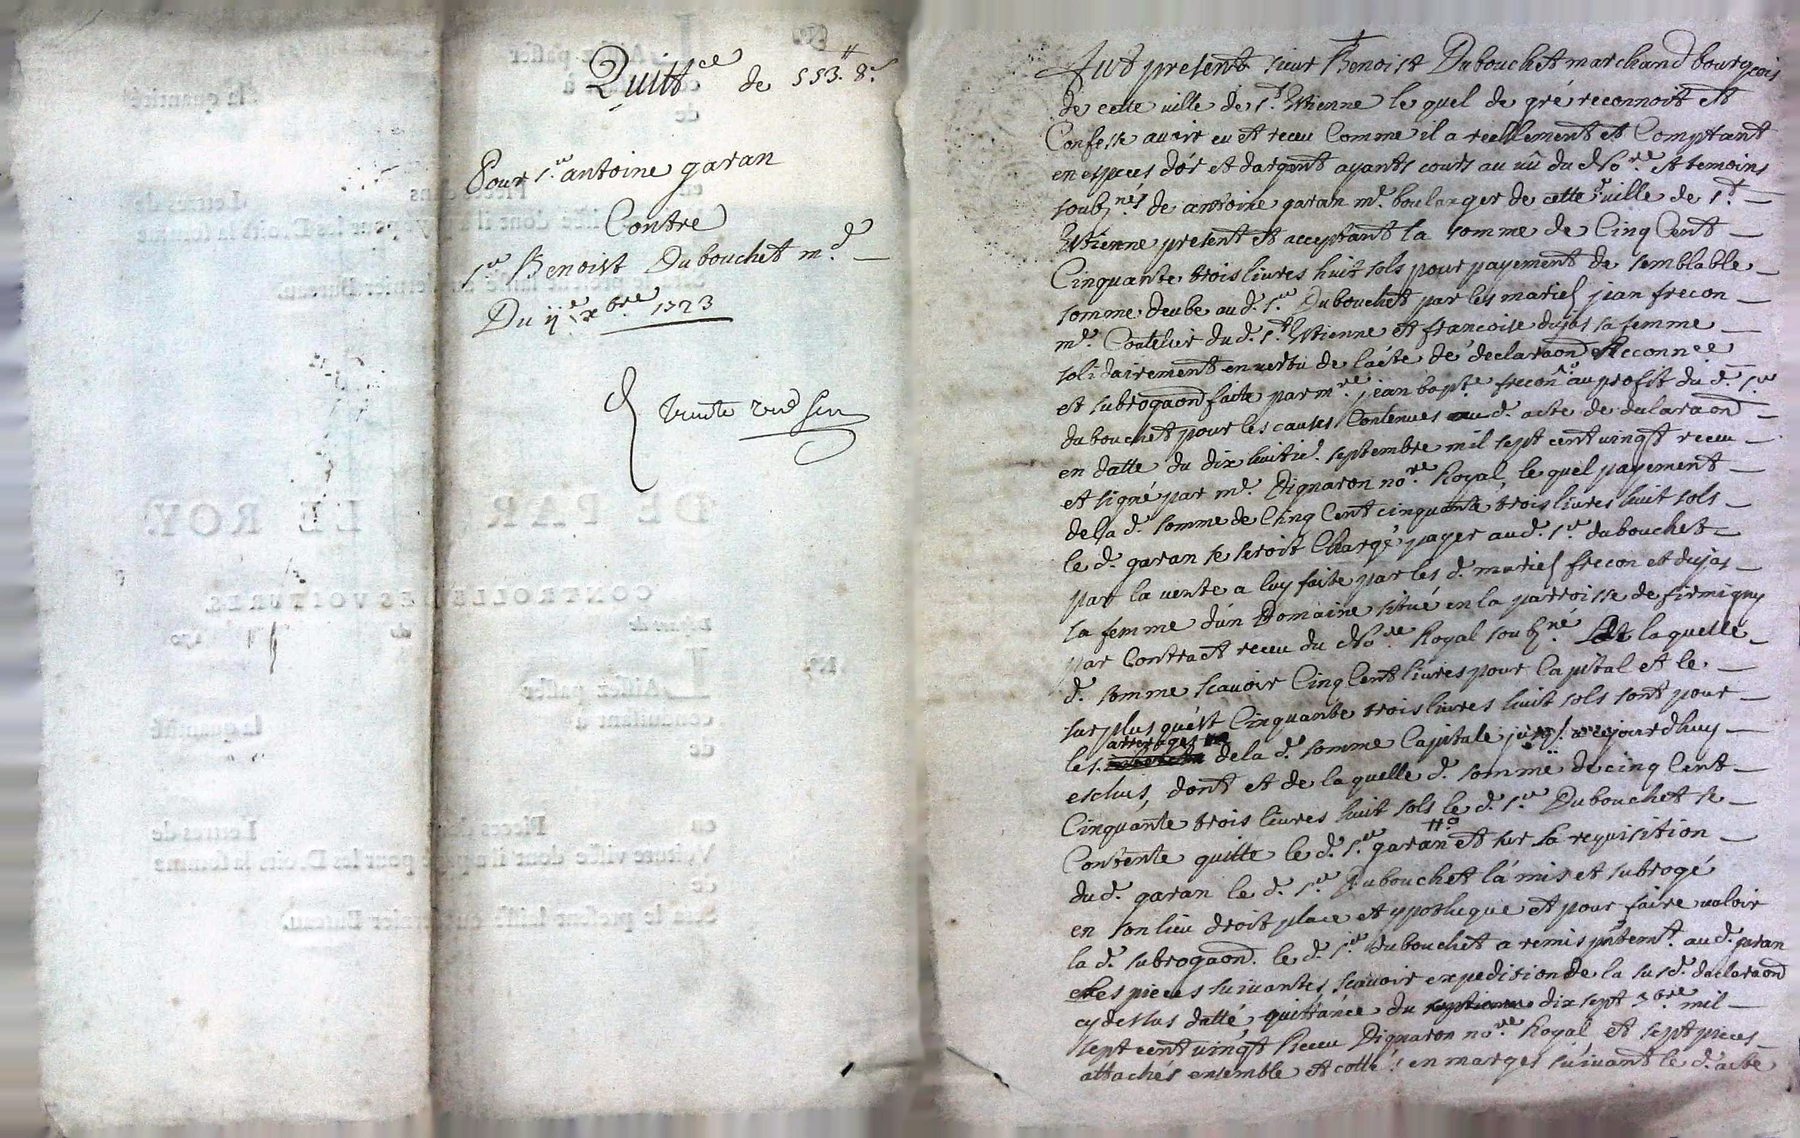 Quitt^ce de 553^# 8^s
Pour s^r antoine garan
Contre
s^r Benoist Dubouchet m^d
Du ij^e x^bre 1723
DE PAR LE ROY.
CONTROLLE DES VOITURES.
Laissez passer
la quantité
de
en Pieces Lettres de
Voiture visée dont il a payé pour les Droits la somme
de
Sera le present laissé au dernier Bureau.
Fut present sieur Benoist Dubouchet marchand bourgeois
de cette ville de s^t Etienne le quel de gré reconnoit et
Confesse avoir eu et receu Comme il a reellement et Comptant
en especes d'or et d'argent ayants cours au vû du d No^re et temoins
soub^nés de antoine garan m^e boulanger de cette ville de s^t
Etienne present et acceptant la somme de Cinq Cent
Cinquante trois livres huit sols pour payement de semblable
somme deube au d. s^r Dubouchet par les mariés jean frecon
m^e Coutelier du d. s^t Etienne et francoise dujas sa femme
solidairement en vertu de l'acte de declaraon Reconnée
et subrogaon faite par m^re jean bap^te frecon au profit du d. s^r
dubouchet pour les causes Contenues au d. acte de declaraon
en datte du dix huitie. septembre mil sept cent vingt receu
et signé par m^e Dignaron no^re Royal, le quel payement
de la d. somme de Cinq Cent cinquante trois livres huit sols
le d. garan se seroit Chargé payer au d. s^r dubouchet
par la vente a luy faite par les d. mariés frecon et dujas
sa femme d'un Domaine situé en la parroisse de firmigny
par Contract receu du d No^re Royal soub^né de laquelle
d. somme scavoir Cinq Cent livres pour Capital et le
surplus qu'est Cinquante trois livres huit sols sont pour
les arrerages de la d. somme Capitale jusq. a ce jourdhuy
esclus, dont et de la quelle d. somme de cinq Cent
Cinquante trois livres huit sols le d. s^r Dubouchet se
Contente quitte le d. s^r garan et sur la requisition
du d. garan le d. s^r Dubouchet l'a mis et subrogé
en son lieu droit place et ypotheque et pour faire valoir
la d. subrogaon. le d. s^r dubouchet a remis pntem^t. au d. garan
les pieces suivantes scavoir expedition de la sus d. declaraon
cy dessus datté, quittance du dix sept x^bre mil
sept cent vingt Receu Dignaron no^re Royal et sept pieces
attachés ensemble et cotté en marges suivant le d. acte